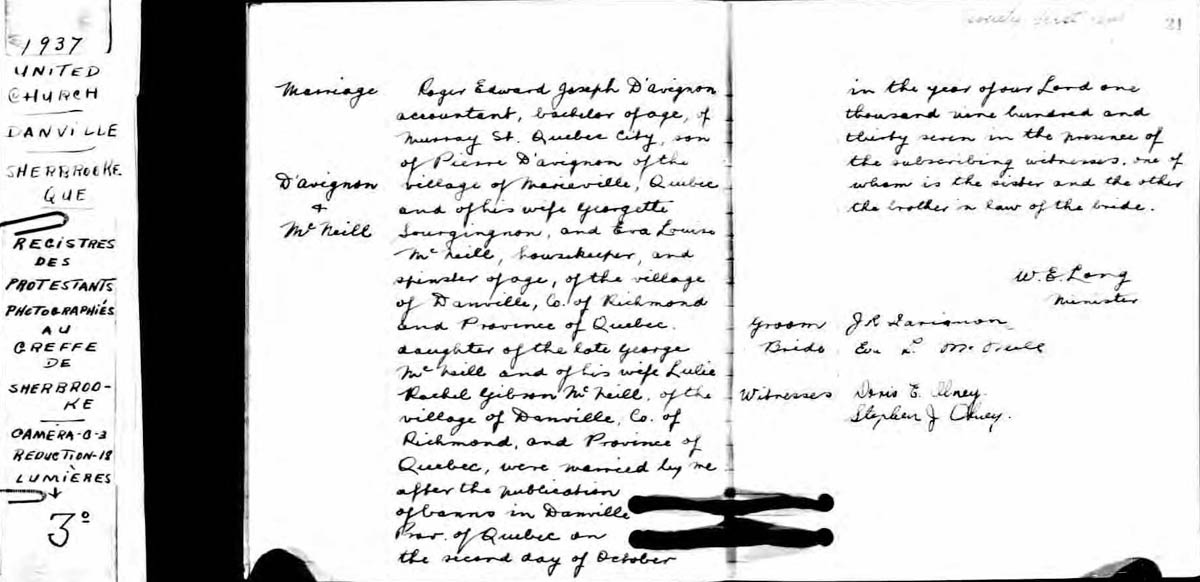 1937
UNITED
CHURCH
DANVILLE
SHERBROOKE
QUE
REGISTRES
DES
PROTESTANTS
PHOTOGRAPHIÉS
AU
GREFFE
DE
SHERBROO-
KE
CAMERA-C-3
REDUCTION-18
LUMIÈRES
3º
Marriage
D'avignon
&
McNeill
Roger Edward Joseph D'avignon
accountant, bachelor of age, of
Murray St. Quebec City, son
of Pierre D'avignon of the
village of Marieville, Quebec
and of his wife Georgette
and Eva Louise
McNeill, housekeeper, and
spinster of age, of the village
of Danville, Co. of Richmond
and Province of Quebec.
daughter of the late George
McNeill and of his wife Lulie
Rachel Gibson McNeill, of the
village of Danville, Co. of
Richmond, and Province of
Quebec, were married by me
after the publication
of banns in Danville
Prov. of Quebec on
the second day of October
21
in the year of our Lord one
thousand nine hundred and
thirty seven in the presence of
the subscribing witnesses, one of
whom is the sister and the other
the brother in law of the bride.
W. E. Long
Minister
Groom J R Davignon
Bride Eva L. McNeill
Witnesses Doris E. Olney.
Stephen J Olney.